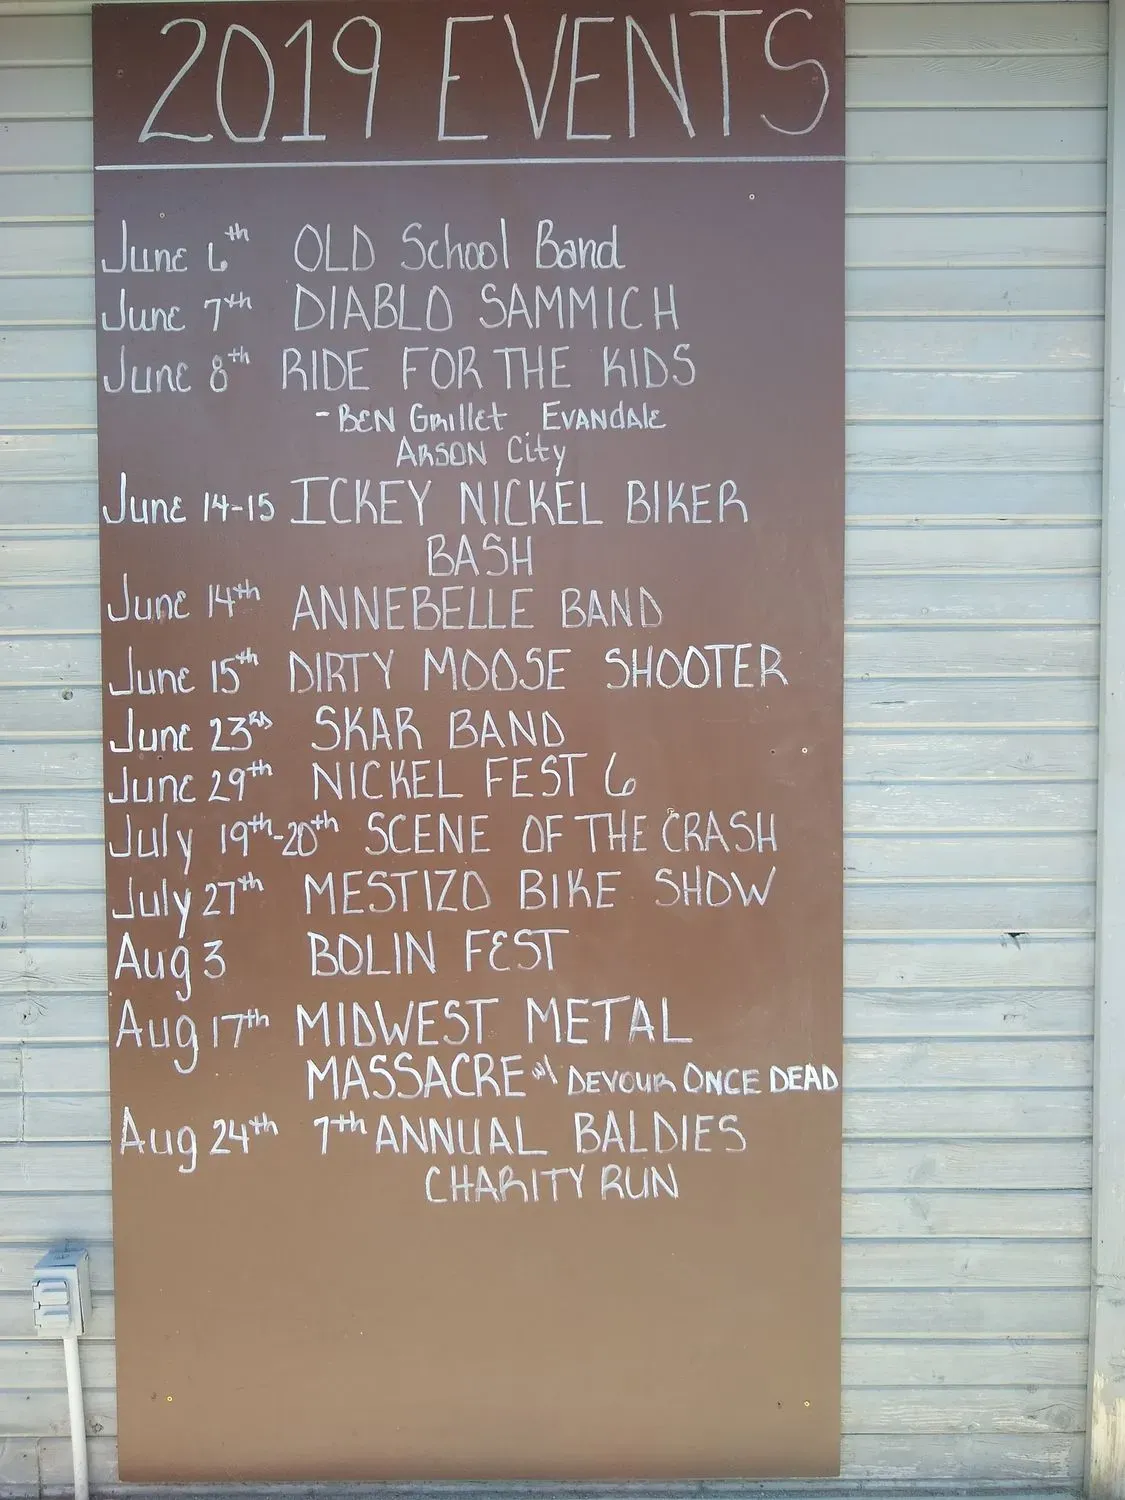 2019 EVENTS
June 6th OLD School Band
June 7th DIABLO SAMMICH
June 8th RIDE FOR THE KIDS
-BEN Grillet EVANDALE
ARSON City
June 14-15 ICKEY NICKEL BIKER
BASH
June 14th ANNEBELLE BAND
June 15th DIRTY MOOSE SHOOTER
June 23RD SKAR BAND
June 29th NICKEL FEST 6
July 19th-20th SCENE OF THE CRASH
July 27th MESTIZO BIKE SHOW
Aug 3 BOLIN FEST
Aug 17th MIDWEST METAL
MASSACRE w\ DEVOUR ONCE DEAD
Aug 24th 7th ANNUAL BALDIES
CHARITY RUN